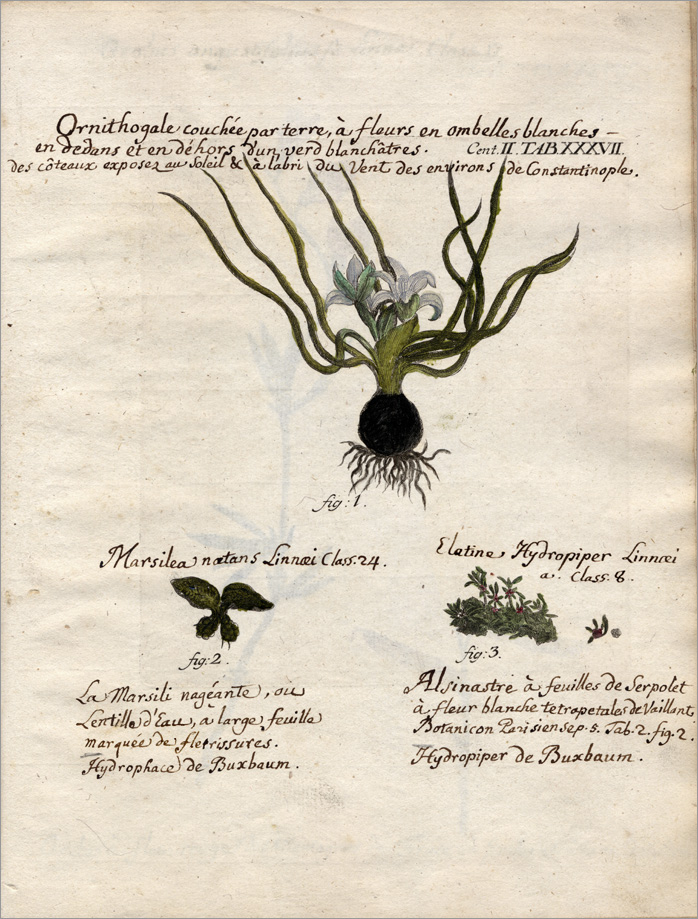 Ornithogale couchée par terre, à fleurs en ombelles blanches –
en dedans et en déhors d'un verd blanchâtres. Cent. II. TAB. XXXVII.
des côteaux exposez au Soleil & à l'abri du Vent des environs de Constantinople.
fig: 1.
Marsilea natans Linnæi Class. 24.
fig: 2.
La Marsili nageante, ou
Lentille d'Eau, à large feuille
marquée de fletrissures.
Hydrophace de Buxbaum.
Elatine Hydropiper Linnæi
a. Class. 8.
fig: 3.
Alsinastre à feuilles de Serpolet
à fleur blanche tetrapetales de Vaillant,
Botanicon Parisiense p. 5. Tab. 2. fig. 2.
Hydropiper de Buxbaum.